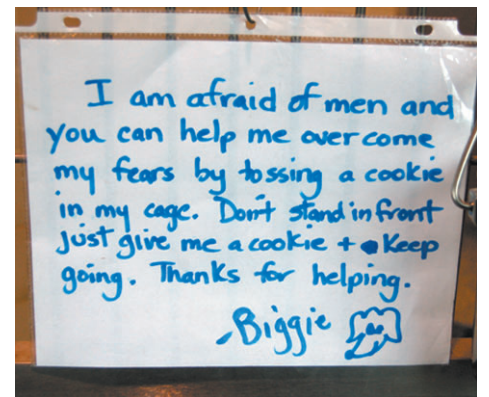 I am afraid of men and
you can help me over come
my fears by tossing a cookie
in my cage. Don't stand in front
Just give me a cookie + Keep
going. Thanks for helping.
-Biggie